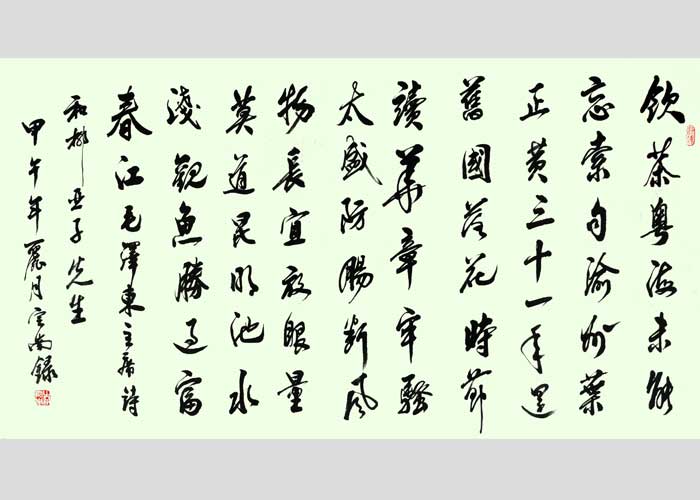 飲茶粵海未能
忘索句渝州葉
正黃三十一年還
舊國落花時節
讀華章牢騷
太盛防腸斷風
物長宜放眼量
莫道昆明池水
淺觀魚勝過富
春江毛澤東主席詩
和柳亞子先生
甲午年麗月錄